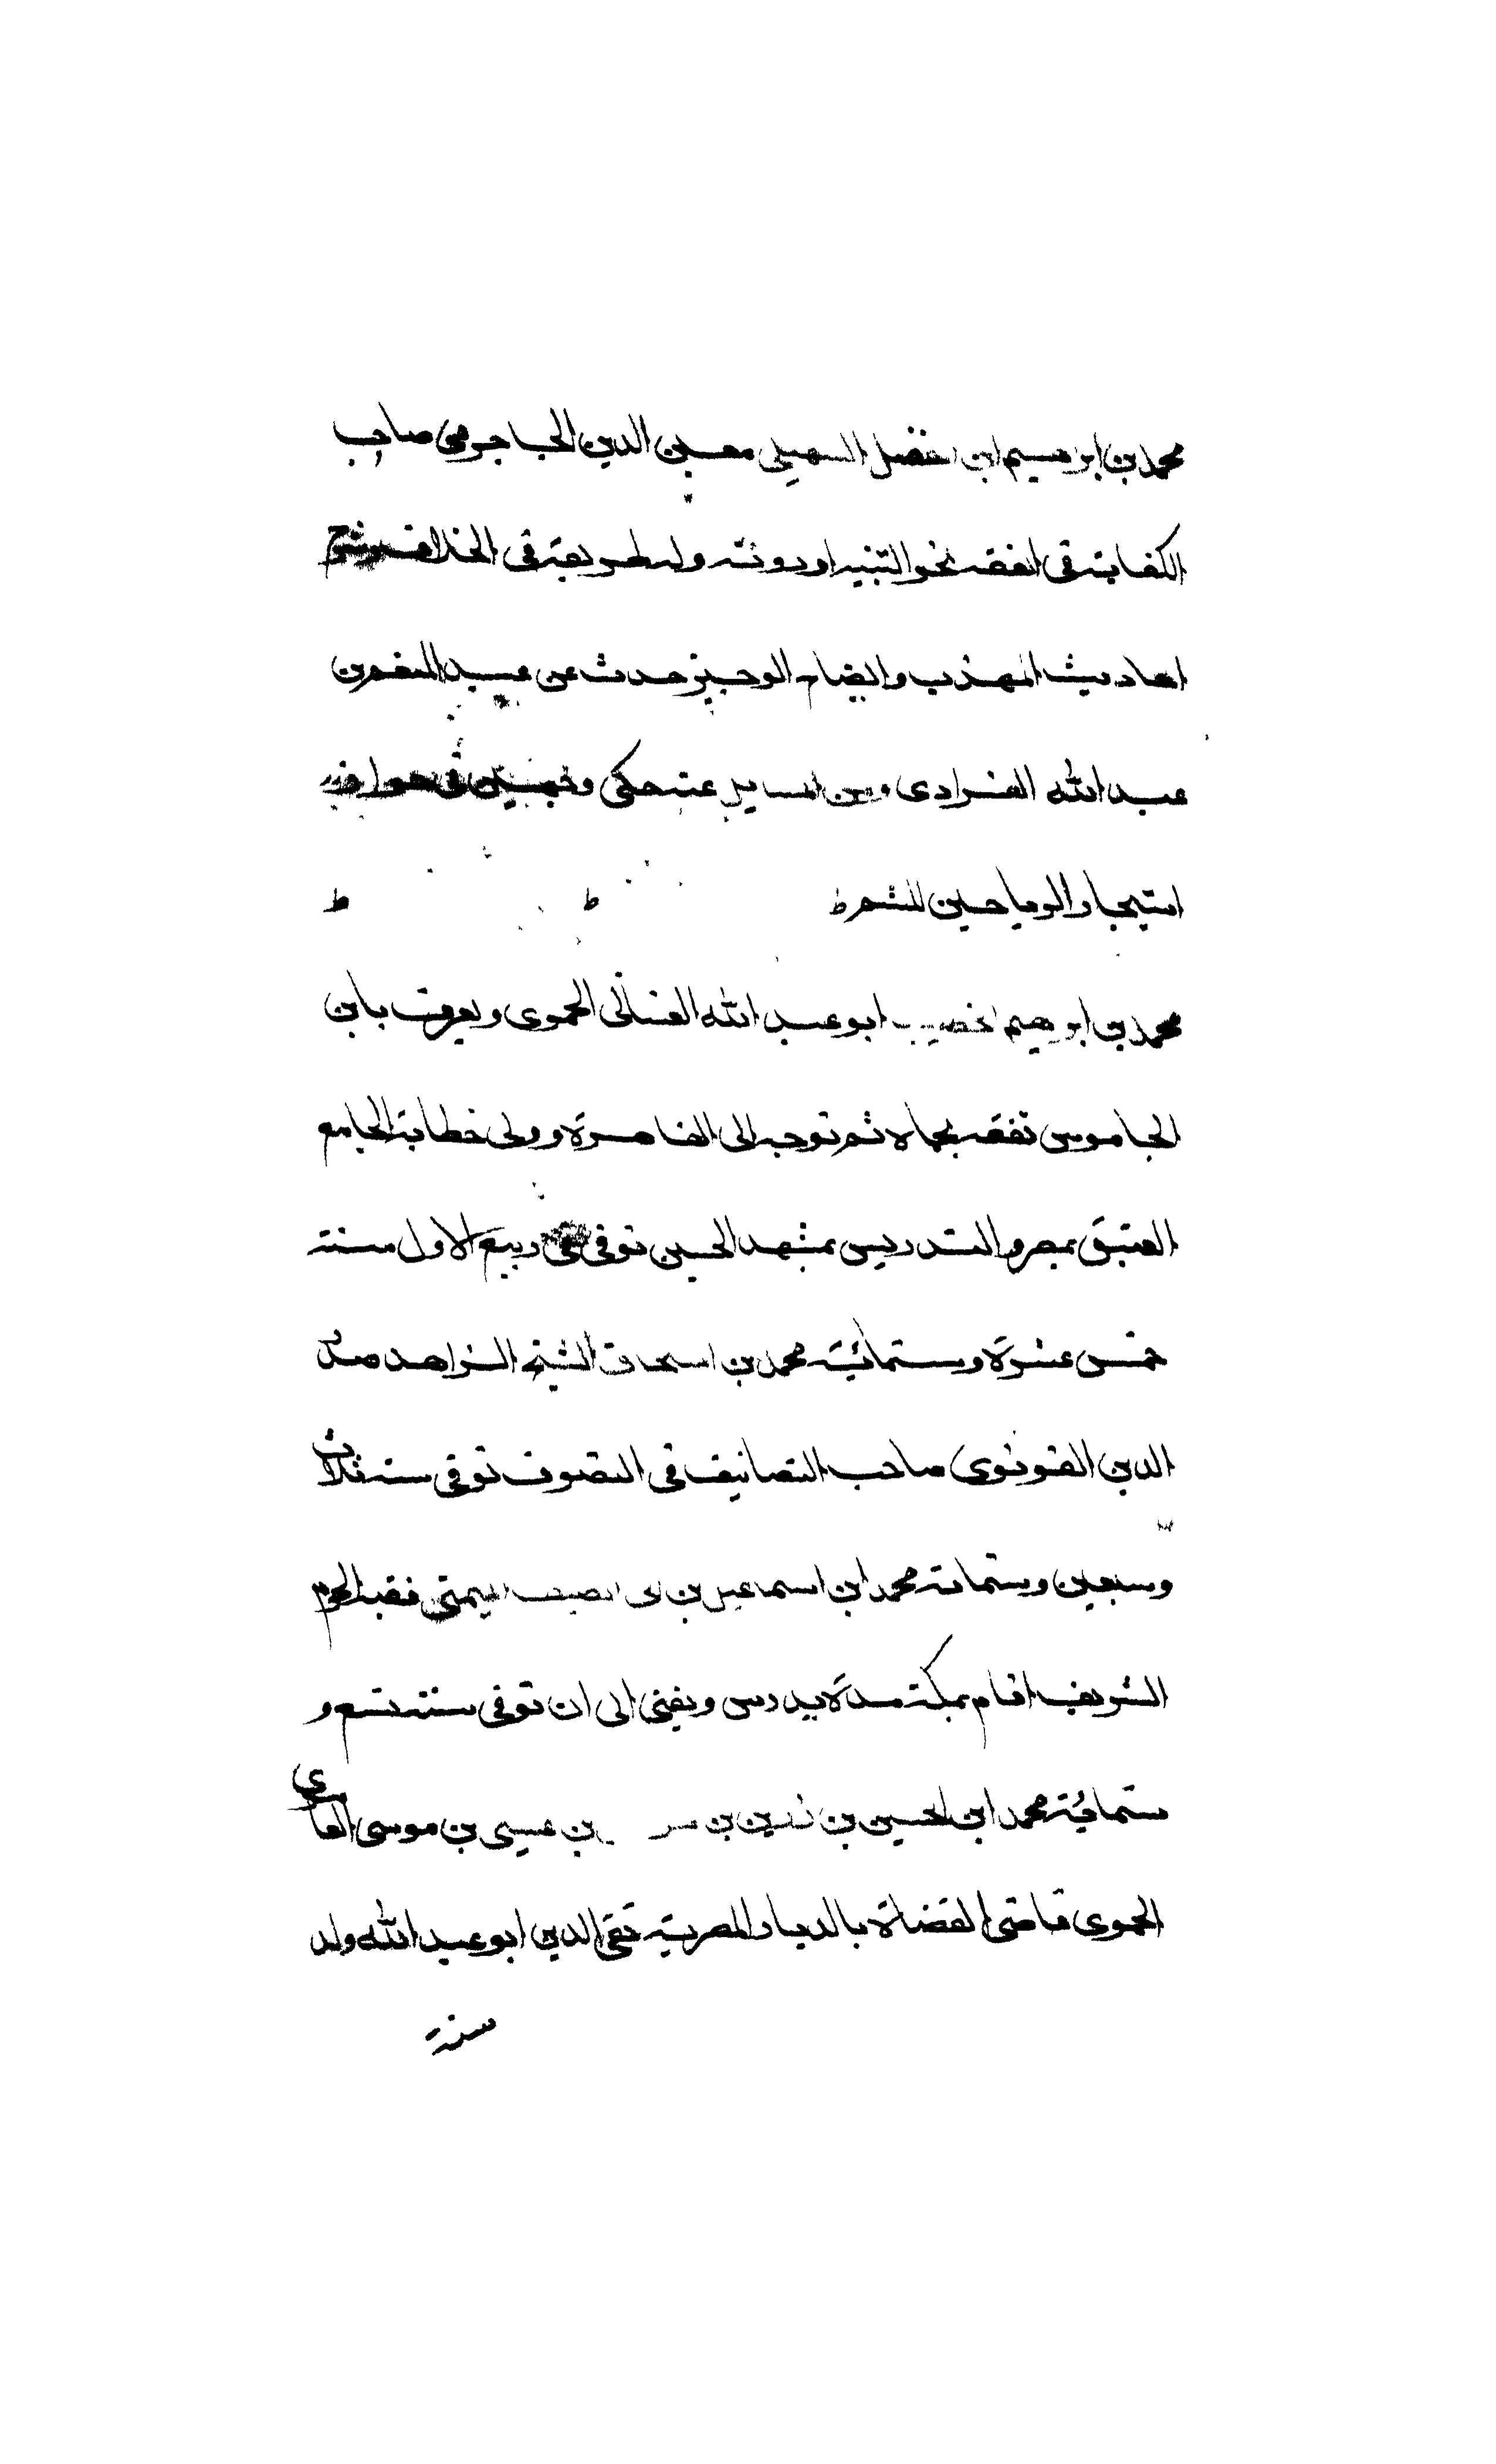 محمد بن ابرهيم ابن الفضل السهيلي معين الدين الجاجرمي صاحب
الكفاية في الفقه نحو التنبيه او دونه وله طريقة في الخلاف وشرح
احاديث المهذب وايضاح الوجيز حدث عن عبد المنعم بن
عبد الله الفرادى ومن المسايل عنه حكى وجهين في جواز
استيجار الرياحين للشم ط ط ط
محمد بن ابرهيم الخطيب ابو عبد الله الغسانى الحموى ويعرف بابن
الجاموس تفقه بحماة ثم توجه الى القاهرة وولى خطابة الجامع
العتيق بمصر والتدريس بمشهد الحسين توفى في ربيع الاول سنة
خمس عشرة وستمائية محمد بن اسحاق الشيخ الزاهد صدر
الدين القونوى صاحب التصانيف في التصوف توفى سنة ثلاث
وسبعين وستماية محمد ابن اسماعيل بن ابى الصيف اليمنى فقيه الحرم
الشريف اقام بمكة مدة يدرس ويفتى الى ان توفى سنة تسع و
ستمائة محمد ابن الحسين بن رزين بن بن عيسى بن موسى العامرى
الحموى قاضى القضاة بالديار المصرية تقى الدين ابو عبد الله ولد
سنة